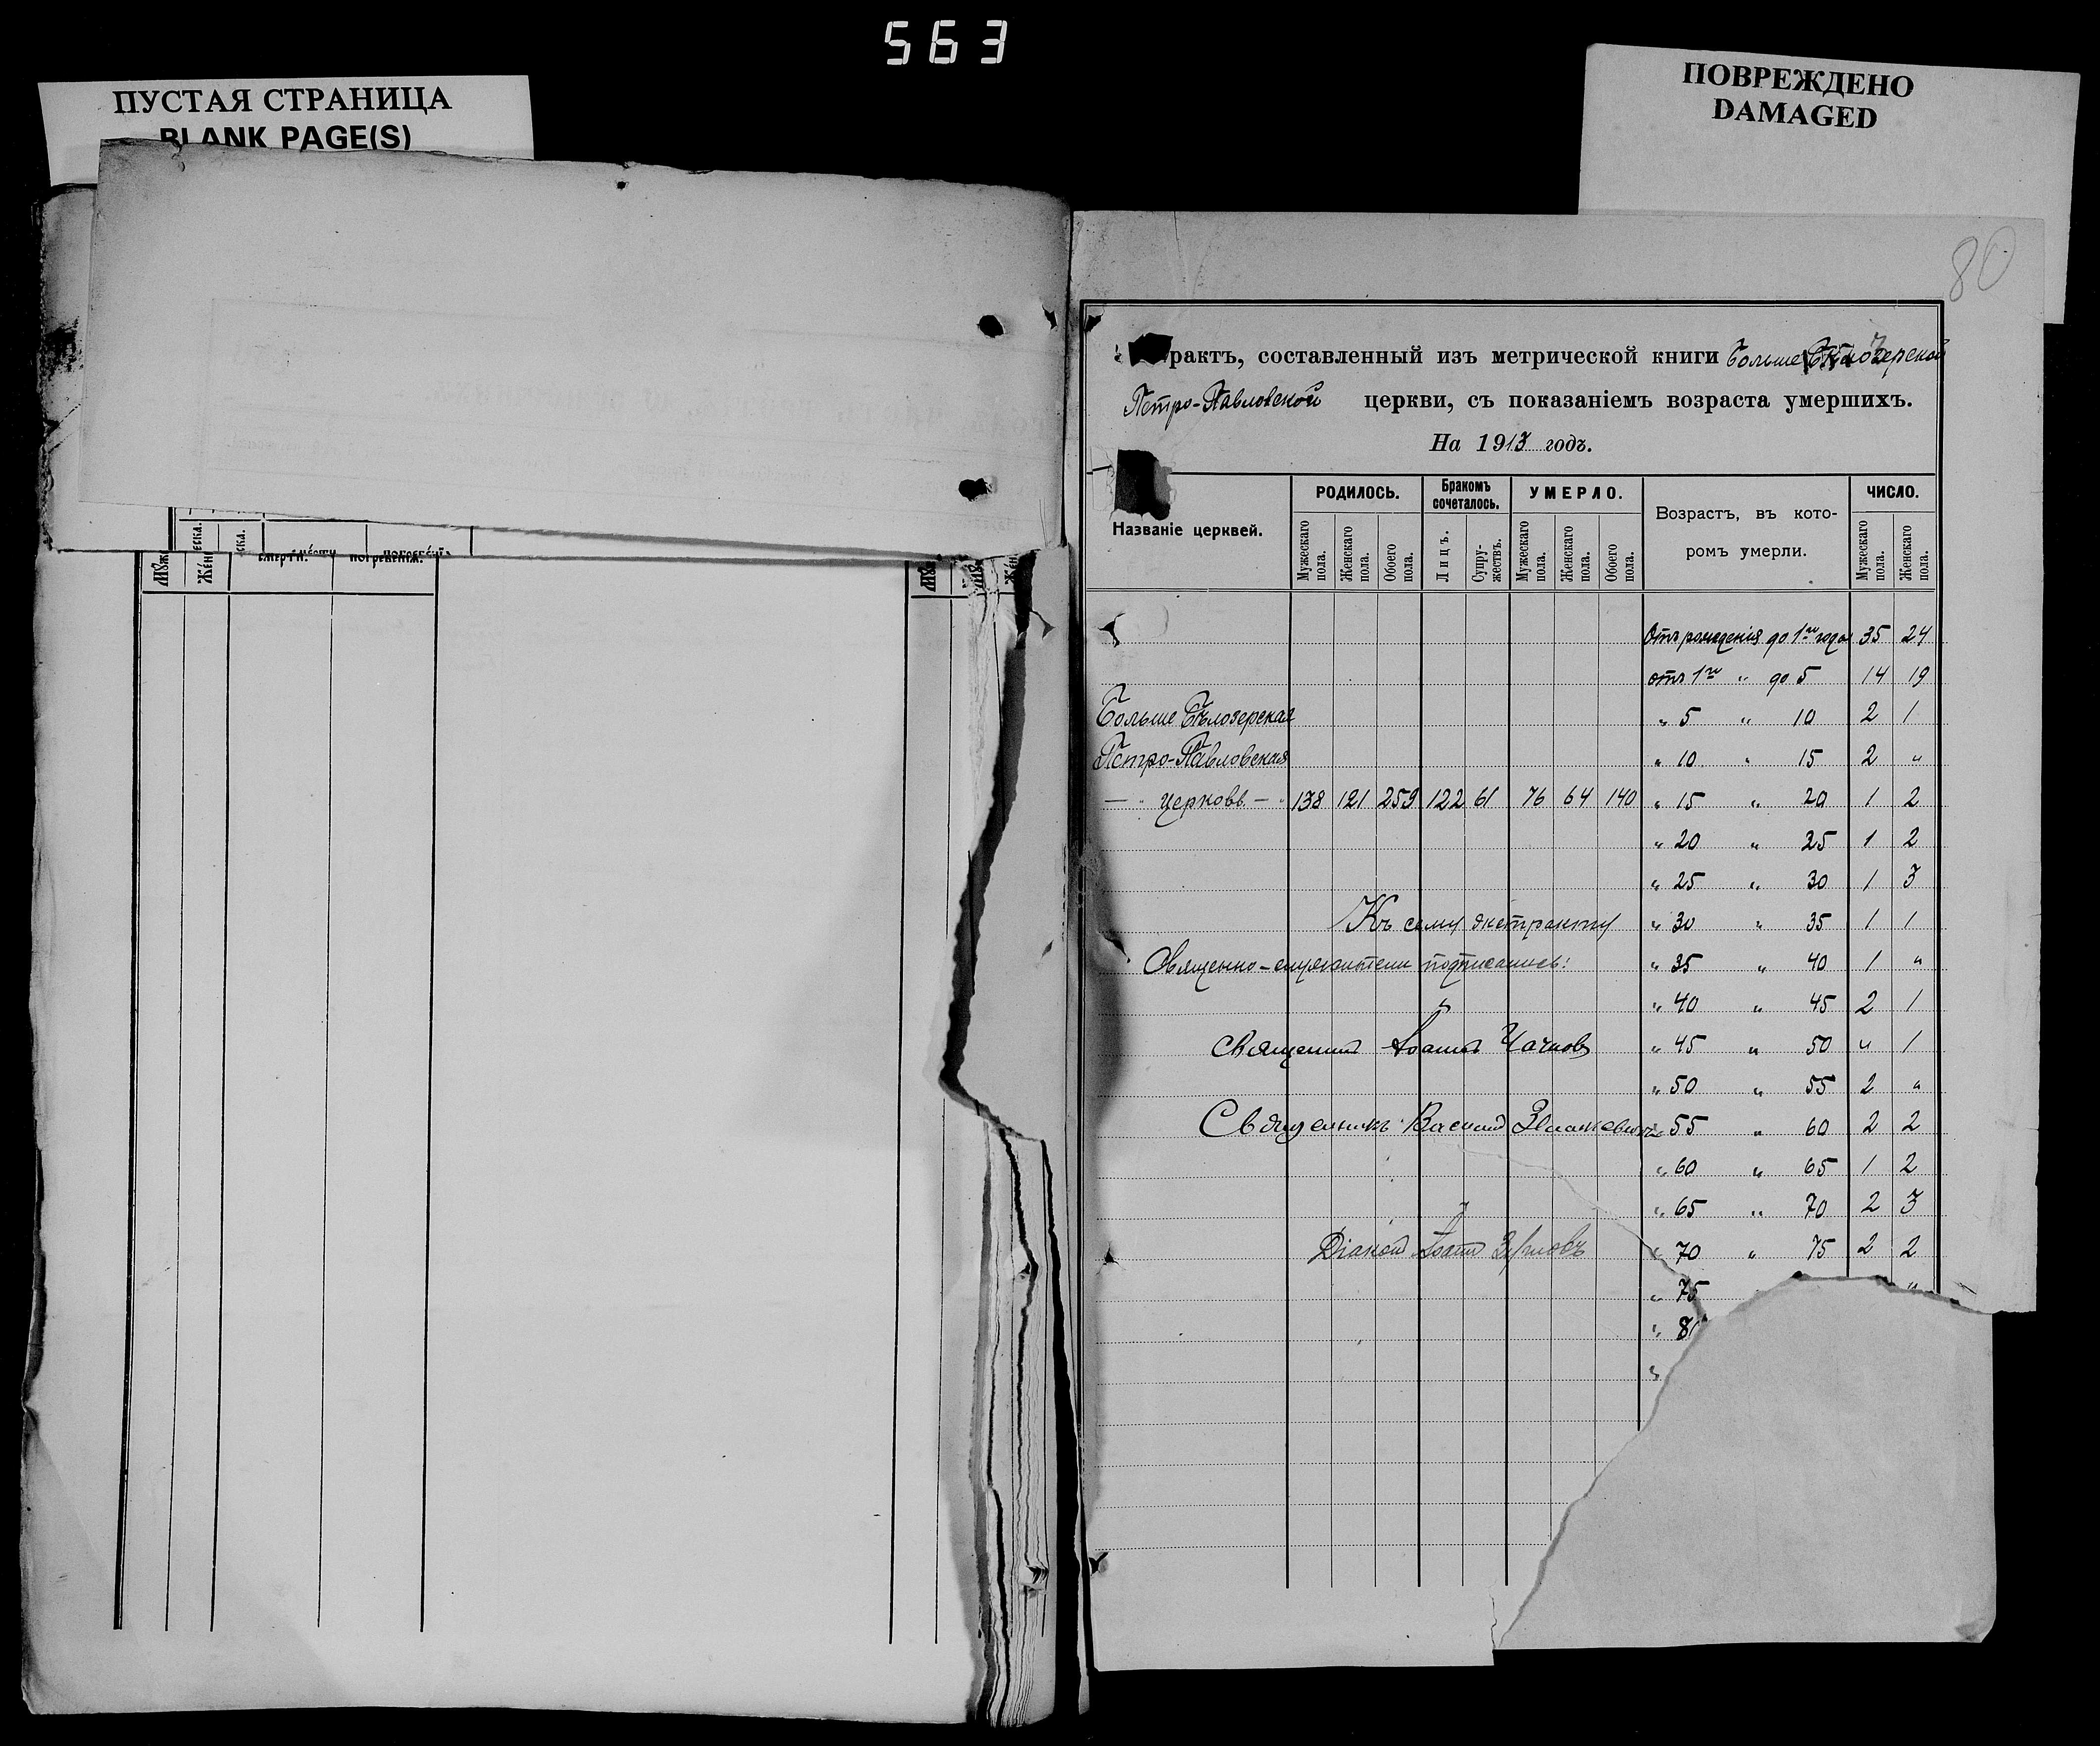 563
ПУСТАЯ СТРАНИЦА
BLANK PAGE(S)
ПОВРЕЖДЕНО
DAMAGED
80
рактъ, составленный изъ метрической книги Больше Бѣлозерской
Петро-Павловской церкви, съ показаніемъ возраста умершихъ.
На 1913 годъ.
Названіе церквей. РОДИЛОСЬ. Бракомъ сочеталось. УМЕРЛО. Возрастъ, въ кото-ромъ умерли. ЧИСЛО.
Мужескаго пола. Женскаго пола. Обоего пола. Лицъ. Супружествъ. Мужескаго пола. Женскаго пола. Обоего пола. Мужескаго пола. Женскаго пола.
Отъ рожденія до 1го года 35 24
отъ 1го " до 5 14 19
Больше Бѣлозерская " 5 " 10 2 1
Петро-Павловская " 10 " 15 2 "
— " церковь — " 138 121 259 122 61 76 64 140 " 15 " 20 1 2
" 20 " 25 1 2
" 25 " 30 1 3
Къ сему экстракту " 30 " 35 1 1
Священно-служители подписались: " 35 " 40 1 "
" 40 " 45 2 1
Священникъ Іоаннъ " 45 " 50 " 1
" 50 " 55 2 "
Священникъ Василій " 55 " 60 2 2
" 60 " 65 1 2
" 65 " 70 2 3
Діаконъ Іоаннъ " 70 " 75 2 2
" 75 "
" 8
"